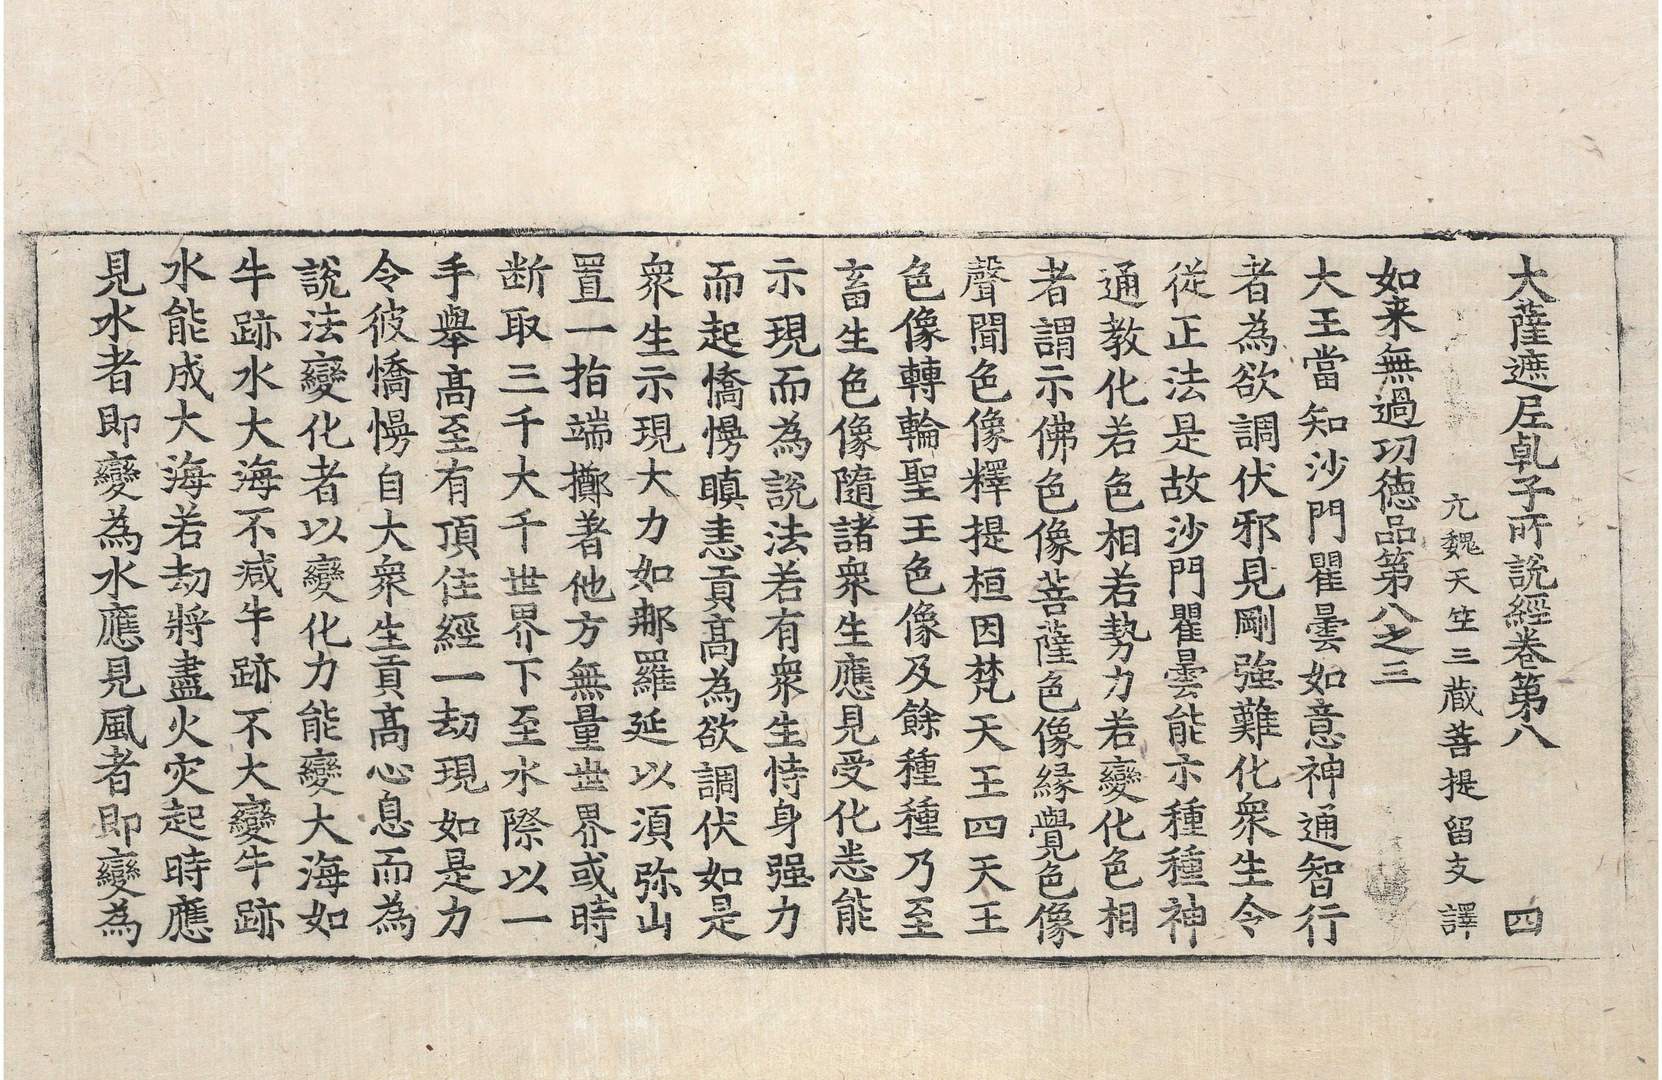 大薩遮尼乹子所說經卷第八 四
元魏天竺三藏菩提留支 譯
如来無過功德品第八之三
大王當知沙門瞿曇如意神通智行
者為欲調伏邪見剛強難化衆生令
從正法是故沙門瞿曇能示種種神
通教化若色相若勢力若變化色相
者謂示佛色像菩薩色像緣覺色像
聲聞色像釋提桓因梵天王四天王
色像轉輪聖王色像及餘種種乃至
畜生色像隨諸衆生應見受化悉能
示現而為說法若有衆生恃身强力
而起憍慢瞋恚貢髙為欲調伏如是
衆生示現大力如那羅延以湏弥山
置一指端擲著他方無量世界或時
断取三千大千世界下至水際以一
手舉髙至有頂住經一劫現如是力
令彼憍慢自大衆生貢髙心息而為
說法變化者以變化力能變大海如
牛跡水大海不減牛跡不大變牛跡
水能成大海若劫將盡火灾起時應
見水者即變為水應見風者即變為